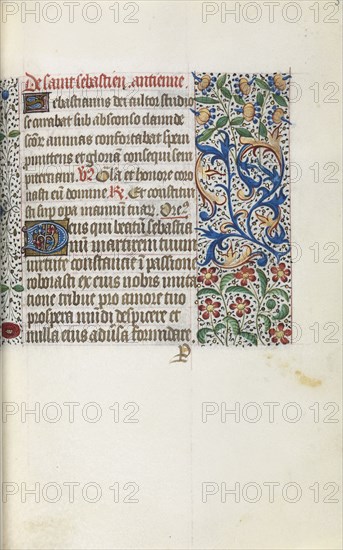 De saint sebastien antienne
Sebastianus dei cultor studio
se curabat sub absconso clamidē
scōr animas confortabat spem
penitens et gloriam consequi sem
piternam ℣ Gla et honore coro
nasti eū domine ℟ Et constitui
sti eū sup opa manuū tuar Ore°
Deus qui beatū sebastia
nū martirem tuum
virtute constantie ī passione
roborasti ex eius nobis imita
tione tribue pro amore tuo
prospera mūdi despicere et
nulla eius adūsa formidare
PHOTO 12
PHOTO 12
PHOTO 12
PHOTO 12
PHOTO 12
PHOTO 12
PHOTO 12
PHOTO 12
PHOTO 12
PHOTO 12
PHOTO 12
PHOTO 12